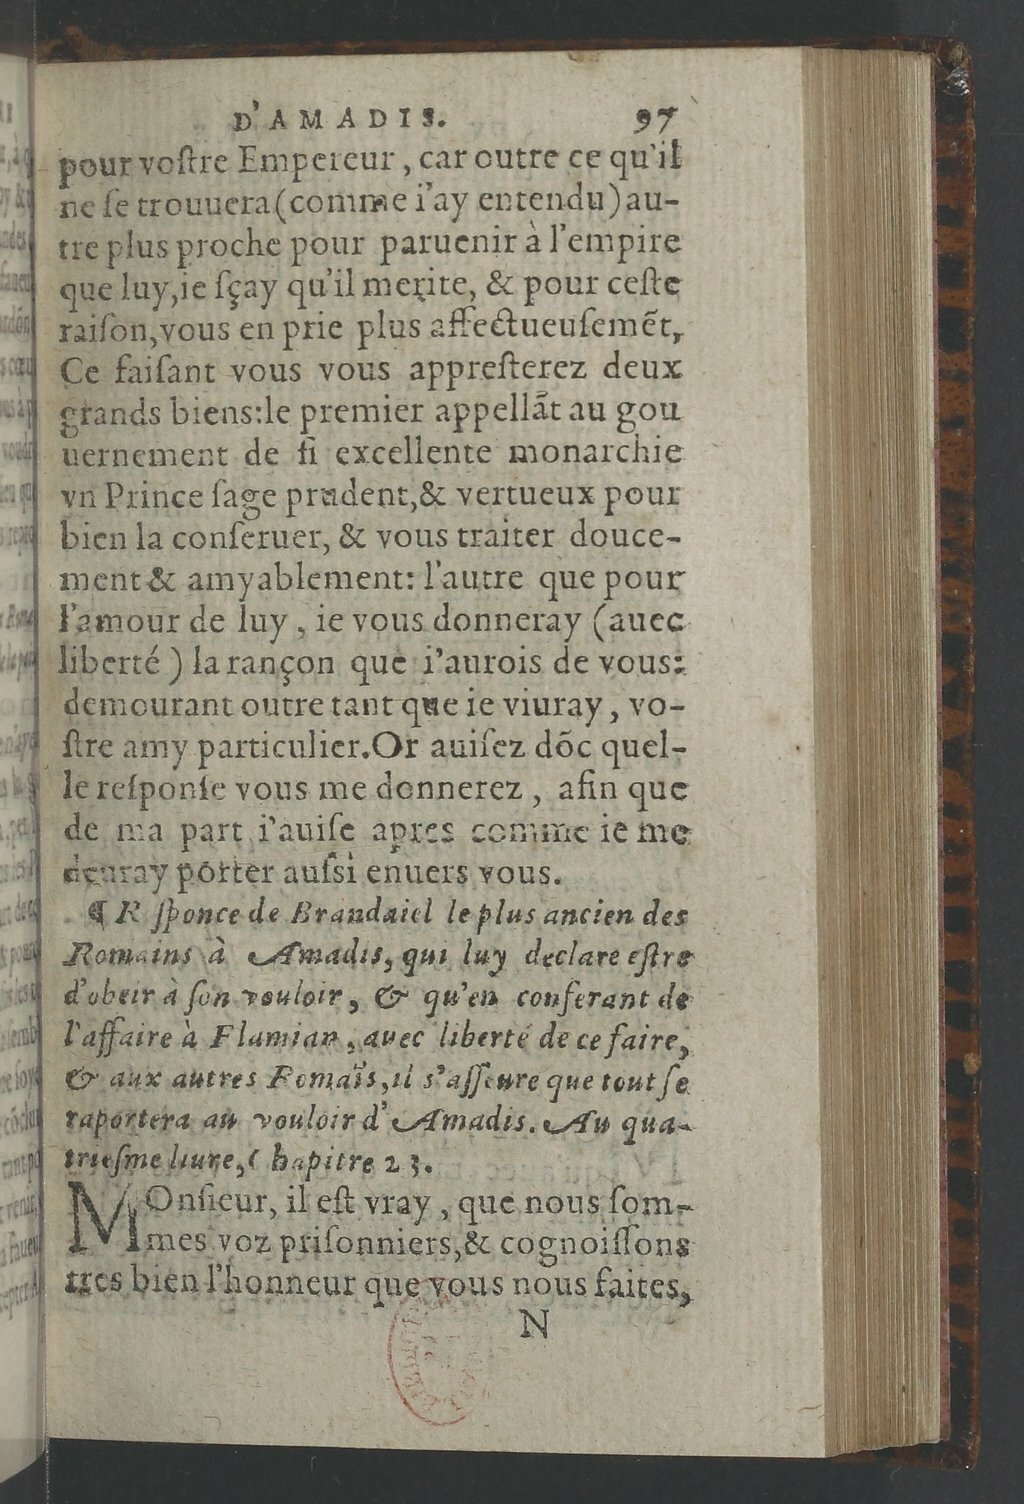 D'AMADIS. 97
pour voſtre Empereur, car outre ce qu'il
ne ſe trouuera (comme i'ay entendu) au-
tre plus proche pour paruenir à l'empire
que luy, ie ſçay qu'il merite, & pour ceſte
raiſon, vous en prie plus affectueuſemẽt,
Ce faiſant vous vous appreſterez deux
grands biens: le premier appellãt au gou
uernement de ſi excellente monarchie
vn Prince ſage prudent, & vertueux pour
bien la conſeruer, & vous traiter douce-
ment & amyablement: l'autre que pour
l'amour de luy, ie vous donneray (auec
liberté) la rançon que i'aurois de vous:
demourant outre tant que ie viuray, vo-
ſtre amy particulier. Or auiſez dõc quel-
le reſponſe vous me donnerez, afin que
de ma part i'auiſe apres comme ie me
deuray porter auſsi enuers vous.
¶ R ſponce de Brandaiel le plus ancien des
Romains à Amadis, qui luy declare eſtre
d'obeir à ſon vouloir, & qu'en conferant de
l'affaire à Flamian, avec liberté de ce faire,
& aux autres Romaĩs, il s'aſſeure que tout ſe
raportera au vouloir d'Amadis. Au qua-
trieſme liure, Chapitre 23.
MOnſieur, il eſt vray, que nous ſom-
mes voz priſonniers, & cognoiſſons
tres bien l'honneur que vous nous faites,
N